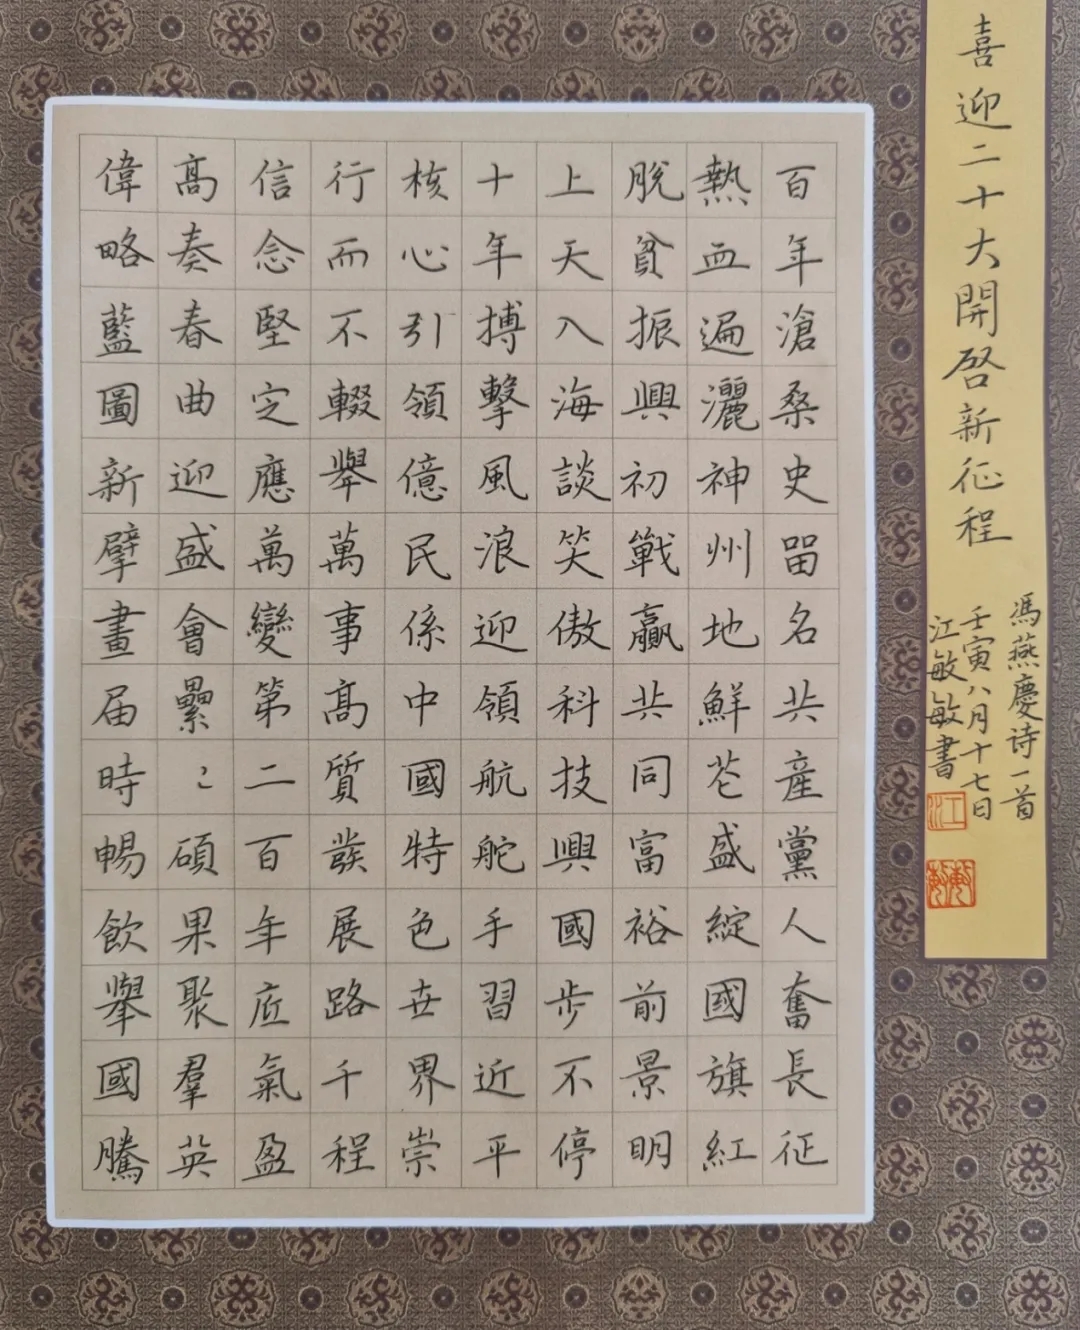 喜迎二十大開啓新征程
馮燕慶诗一首
壬寅八月十七日
江敏敏書
江
百年滄桑史留名共産黨人奮長征
熱血遍灑神州地鮮花盛綻國旗紅
脫貧振興初戰贏共同富裕前景明
上天入海談笑傲科技興國步不停
十年搏擊風浪迎領航舵手習近平
核心引領億民係中國特色世界崇
行而不輟舉萬事高質發展路千程
信念堅定應萬變第二百年底氣盈
高奏春曲迎盛會纍〻碩果聚羣英
偉略藍圖新擘畫届時暢飲舉國騰